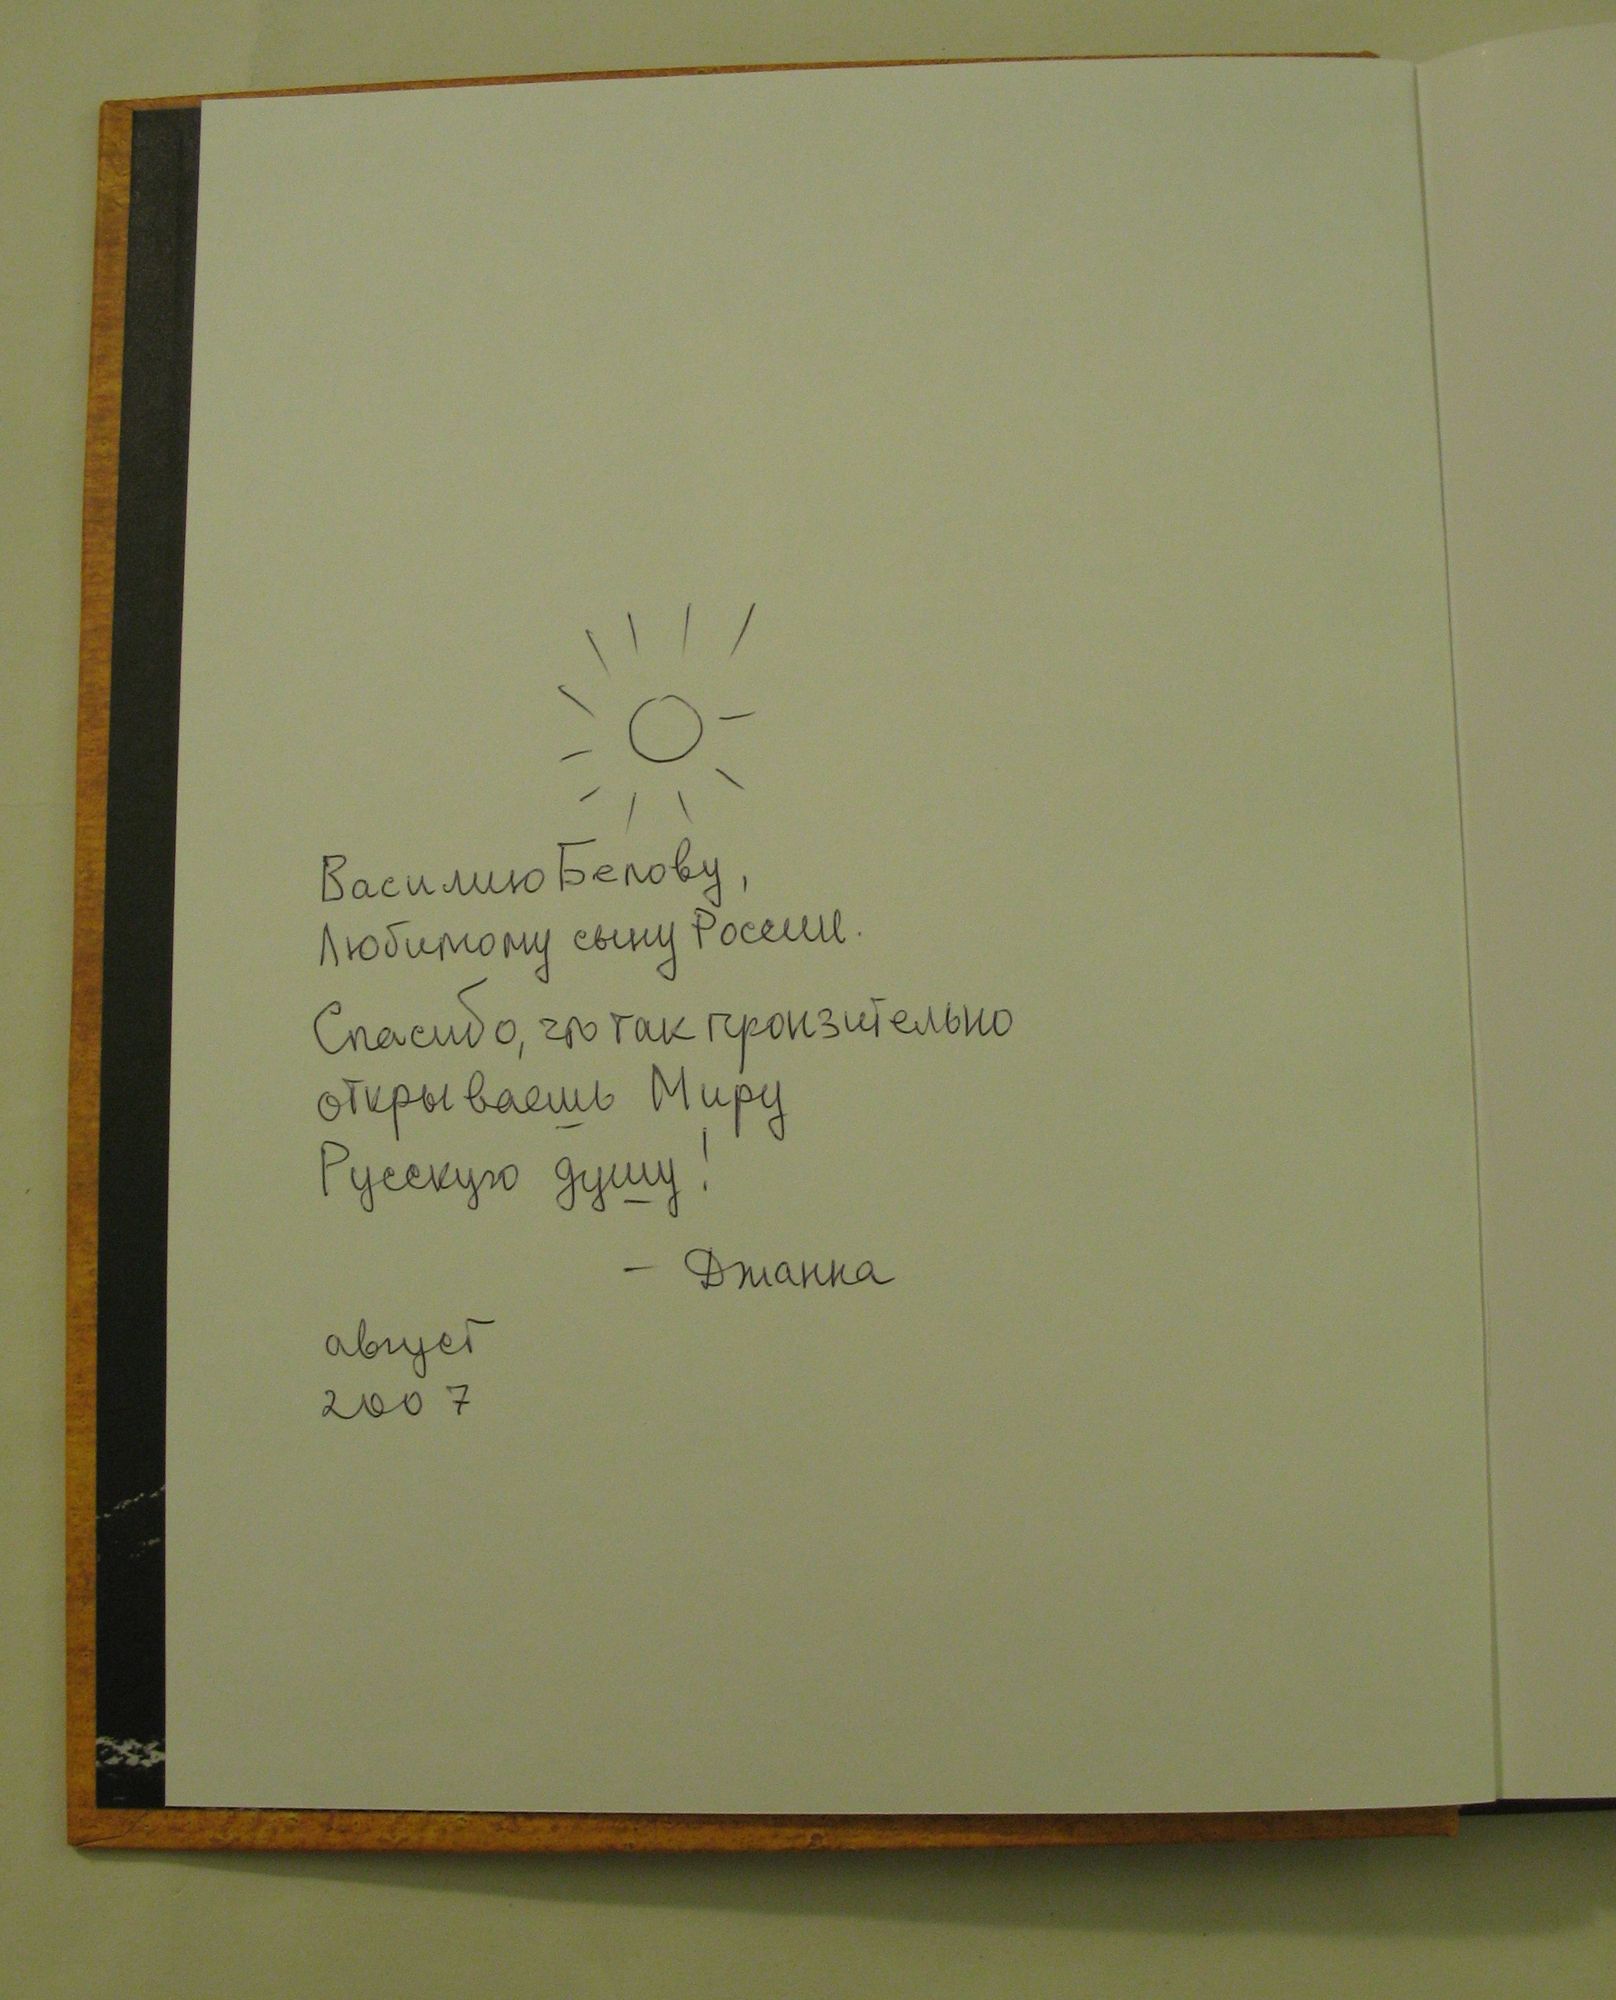 Василию Белову,
Любимому сыну России.
Спасибо, что так пронзительно
открываешь Миру
Русскую душу!
– Джанна
август
2007